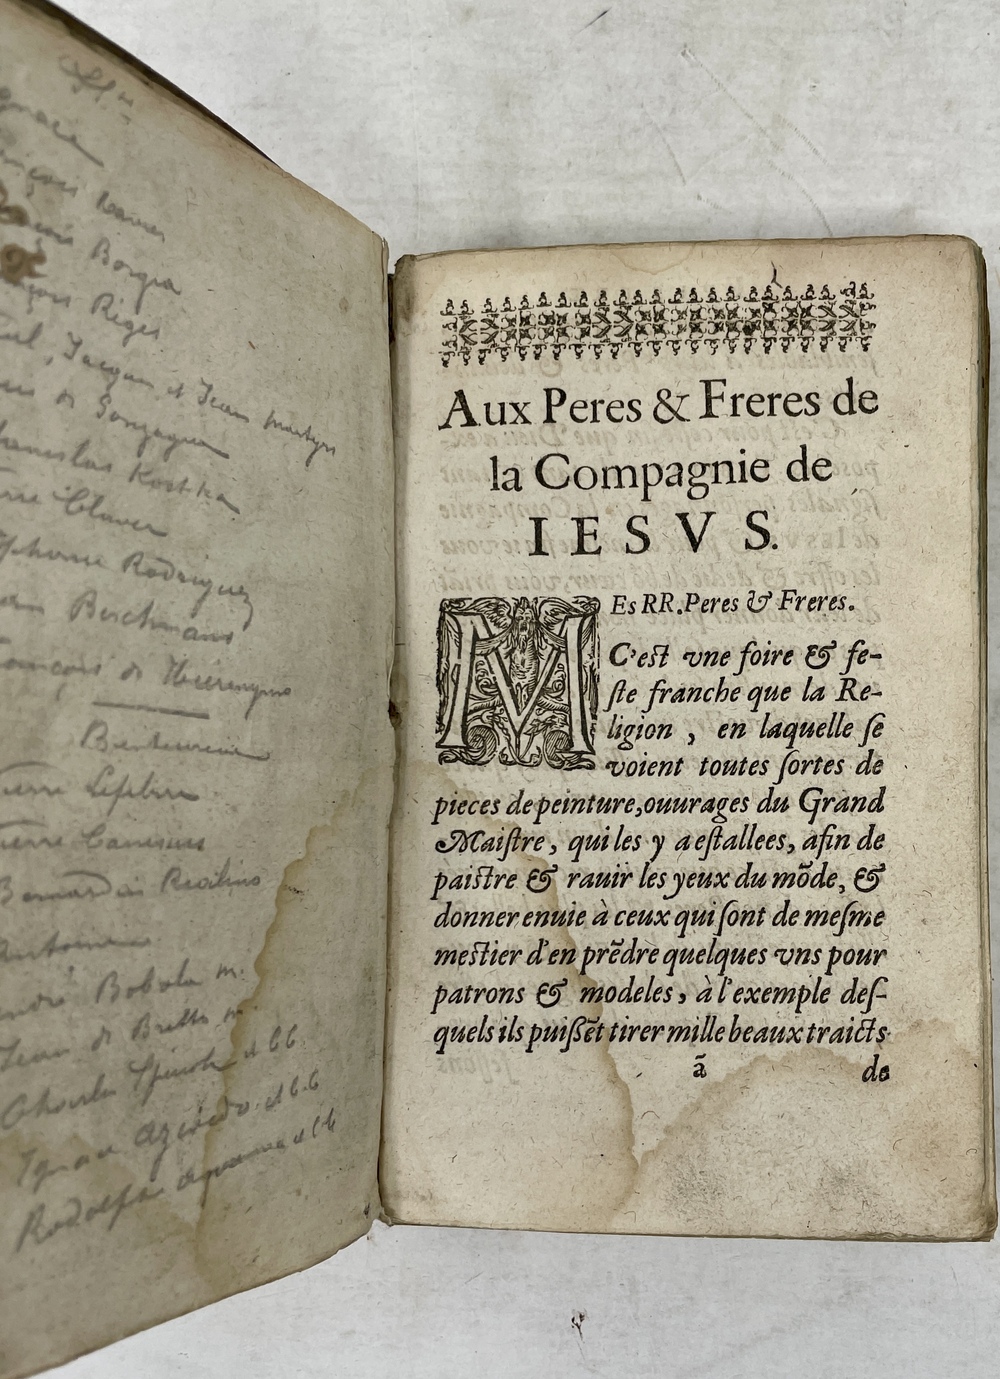 Sts
Ignace
François Xavier
François Borgia
François Régis
Paul, Jacques et Jean martyrs
Louis de Gonzague
Stanislas Kostka
Pierre Claver
Alphonse Rodriguez
Jean Berchmans
François de Hieronymo
Bienheureux
Pierre Lefebvre
Pierre Canisius
Bernardin Realino
Antoine
André Bobola m.
Jean de Britto m.
Charles Spinola et bb
Ignace Azévédo et bb
Rodolfe Aquaviva et bb
Aux Peres & Freres de
la Compagnie de
IESVS.
MEs RR. Peres & Freres.
C'est vne foire & fe-
ſte franche que la Re-
ligion , en laquelle ſe
voient toutes ſortes de
pieces de peinture, ouurages du Grand
Maiſtre, qui les y a eſtallees, afin de
paistre & rauir les yeux du mõde, &
donner enuie à ceux qui ſont de meſme
mestier d'en prẽdre quelques vns pour
patrons & modeles, à l'exemple deſ-
quels ils puiſſẽt tirer mille beaux traicts
ã
de